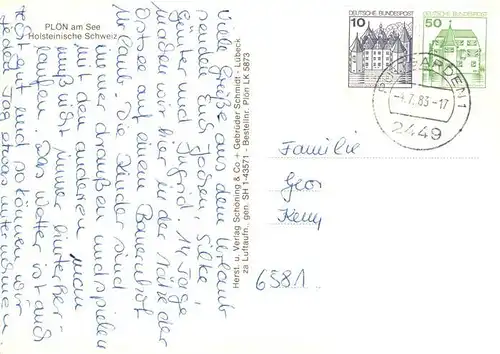 PLÖN am See
Holsteinische Schweiz
DEUTSCHE BUNDESPOST
10
DEUTSCHE BUNDESPOST
50
PUTTGARDEN 1
-4.7.83-17
2449
Viele Grüße aus dem Urlaub
senden Euch Jochen, Silke,
Günter und Ingrid. 14 Tage
machen wir hier in der Nähe der
Ostsee auf einem Bauernhof
Urlaub. Die Kinder sind
immer draußen und spielen
mit den anderen man
muß nicht immer hinterher
laufen. Das Wetter ist auch
recht gut und so können wir
jeden Tag etwas unternehmen.
Herst. u. Verlag Schöning & Co + Gebrüder Schmidt - Lübeck
za Luftaufn., gen. SH 1-43571 - Bestellnr. Plön LK 5873
Familie
Geor
Keny
6581